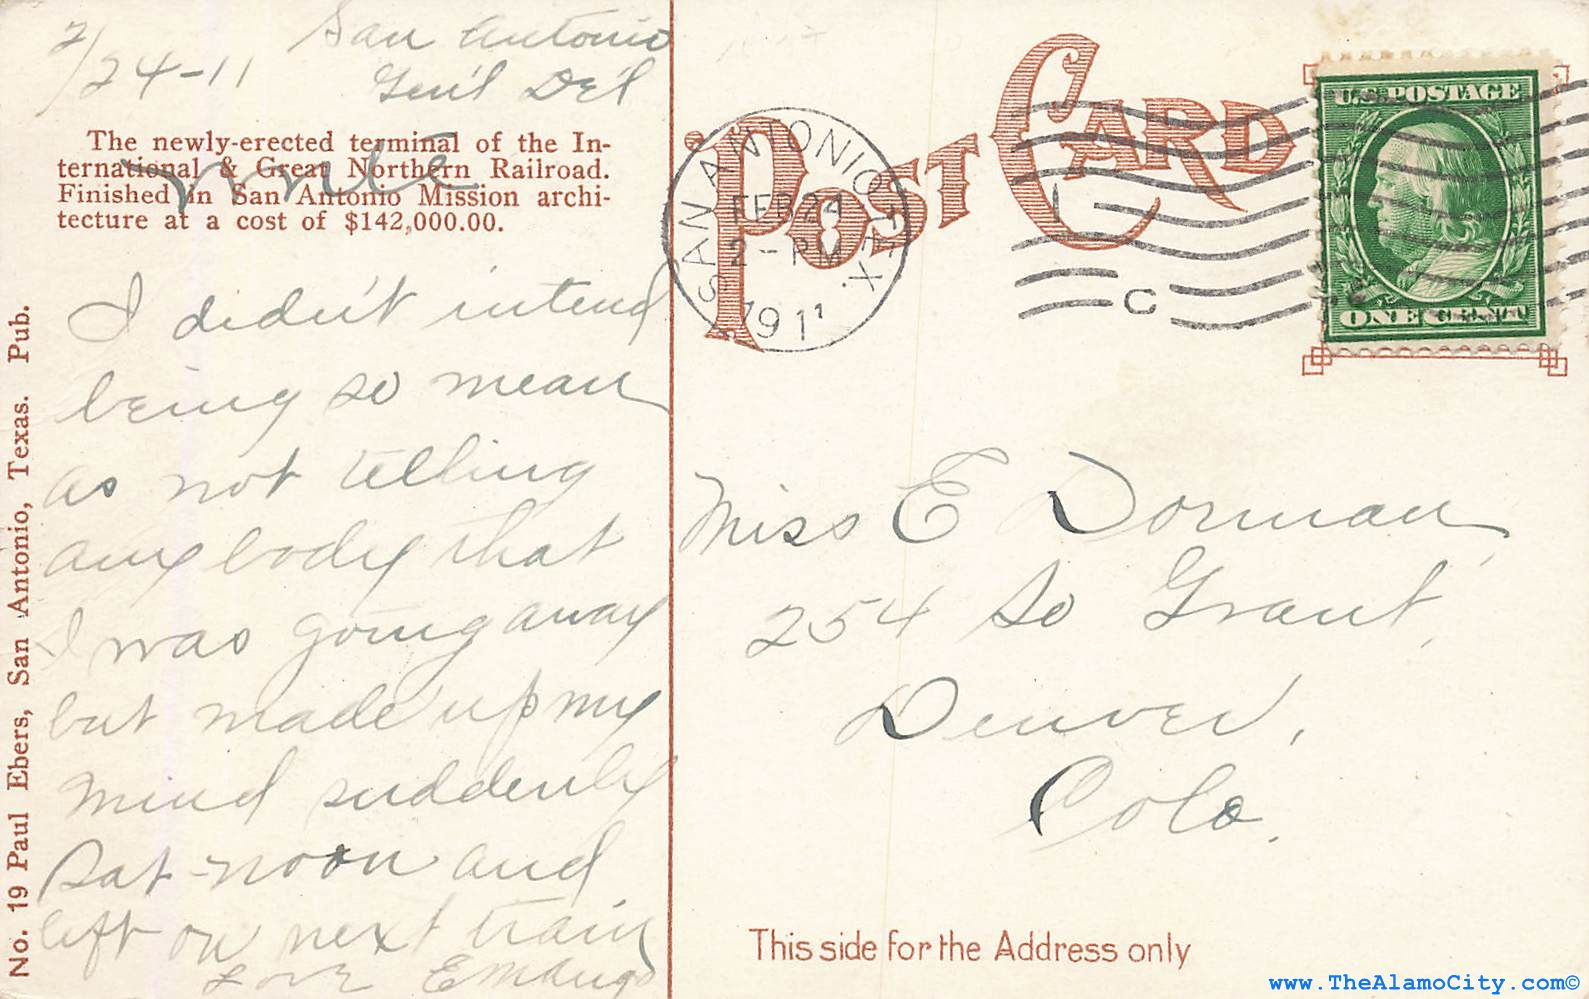 2/24-11
San Antonio
Gen'l Del
The newly-erected terminal of the In-
ternational & Great Northern Railroad.
Finished in San Antonio Mission archi-
tecture at a cost of $142,000.00.
I didn't intend
being so mean
as not telling
any body that
I was going away
but made up my
mind suddenly
Sat-noon and
left on next train
Love
No. 19 Paul Ebers, San Antonio, Texas. Pub.
POST CARD
SAN ANTONIO TEX.
FEB 24
2-PM
1911
C
U.S. POSTAGE
ONE CENT
Miss E Dorman,
254 So Grant,
Denver,
Colo.
This side for the Address only
www.TheAlamoCity.com©